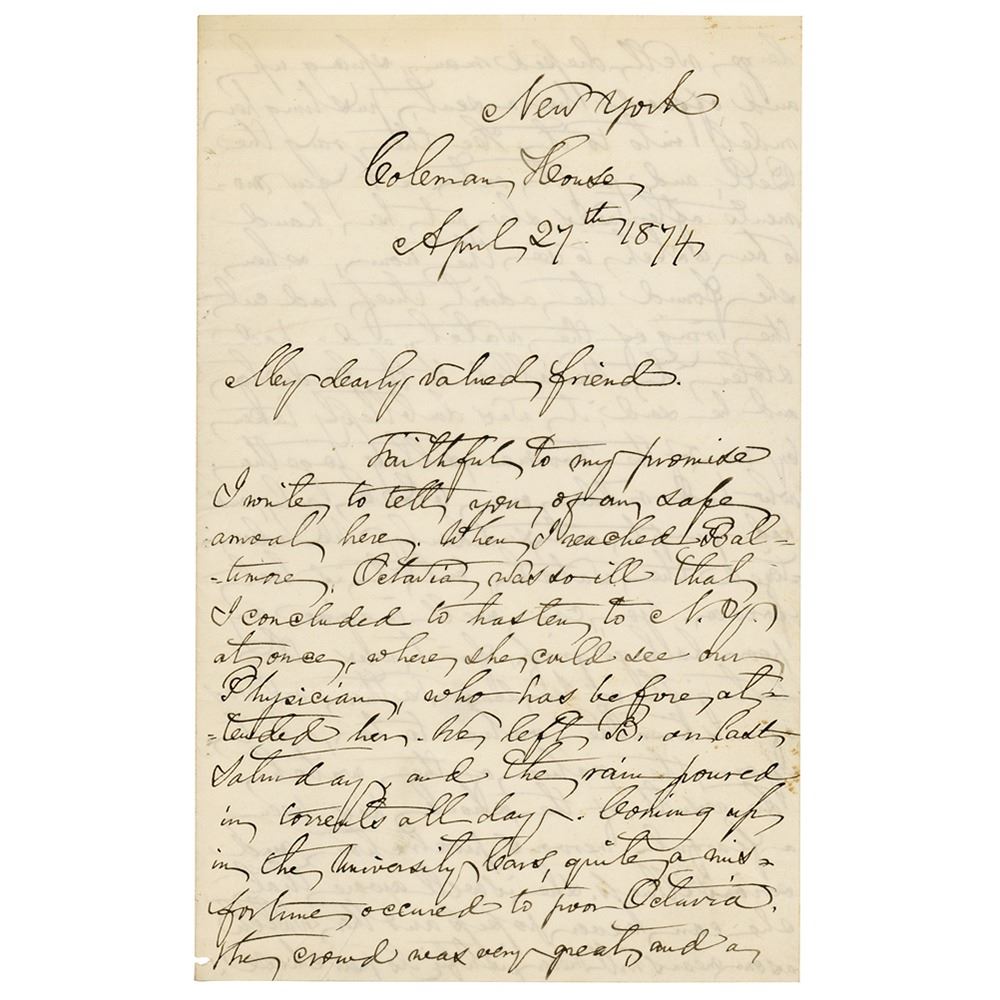 New York
Coleman House,
April 27th 1874,
My dearly valued friend.
Faithful to my promise
I write to tell you, of our safe
arrival here. When I reached Bal-
-timore, Octavia was so ill that
I concluded to hasten to N. Y.
at once, where she could see our
Physician, who has before, at-
-tended her. We left B. on last
Saturday, and the rain poured
in torrents all day. Coming up
in the University Cars, quite a mis-
fortune occured to poor Octavia.
The crowd was very great, and a